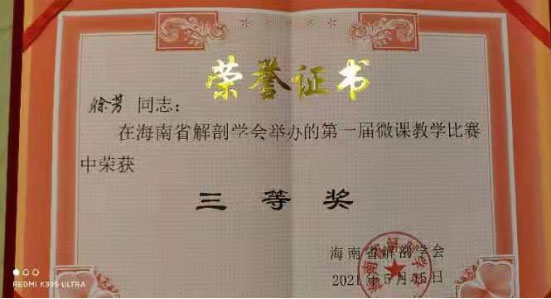 荣誉证书
徐芳 同志：
在海南省解剖学会举办的第一届微课教学比赛
中荣获
三等奖
海南省解剖学会
2021年5月15日
REDMI K30S ULTRA